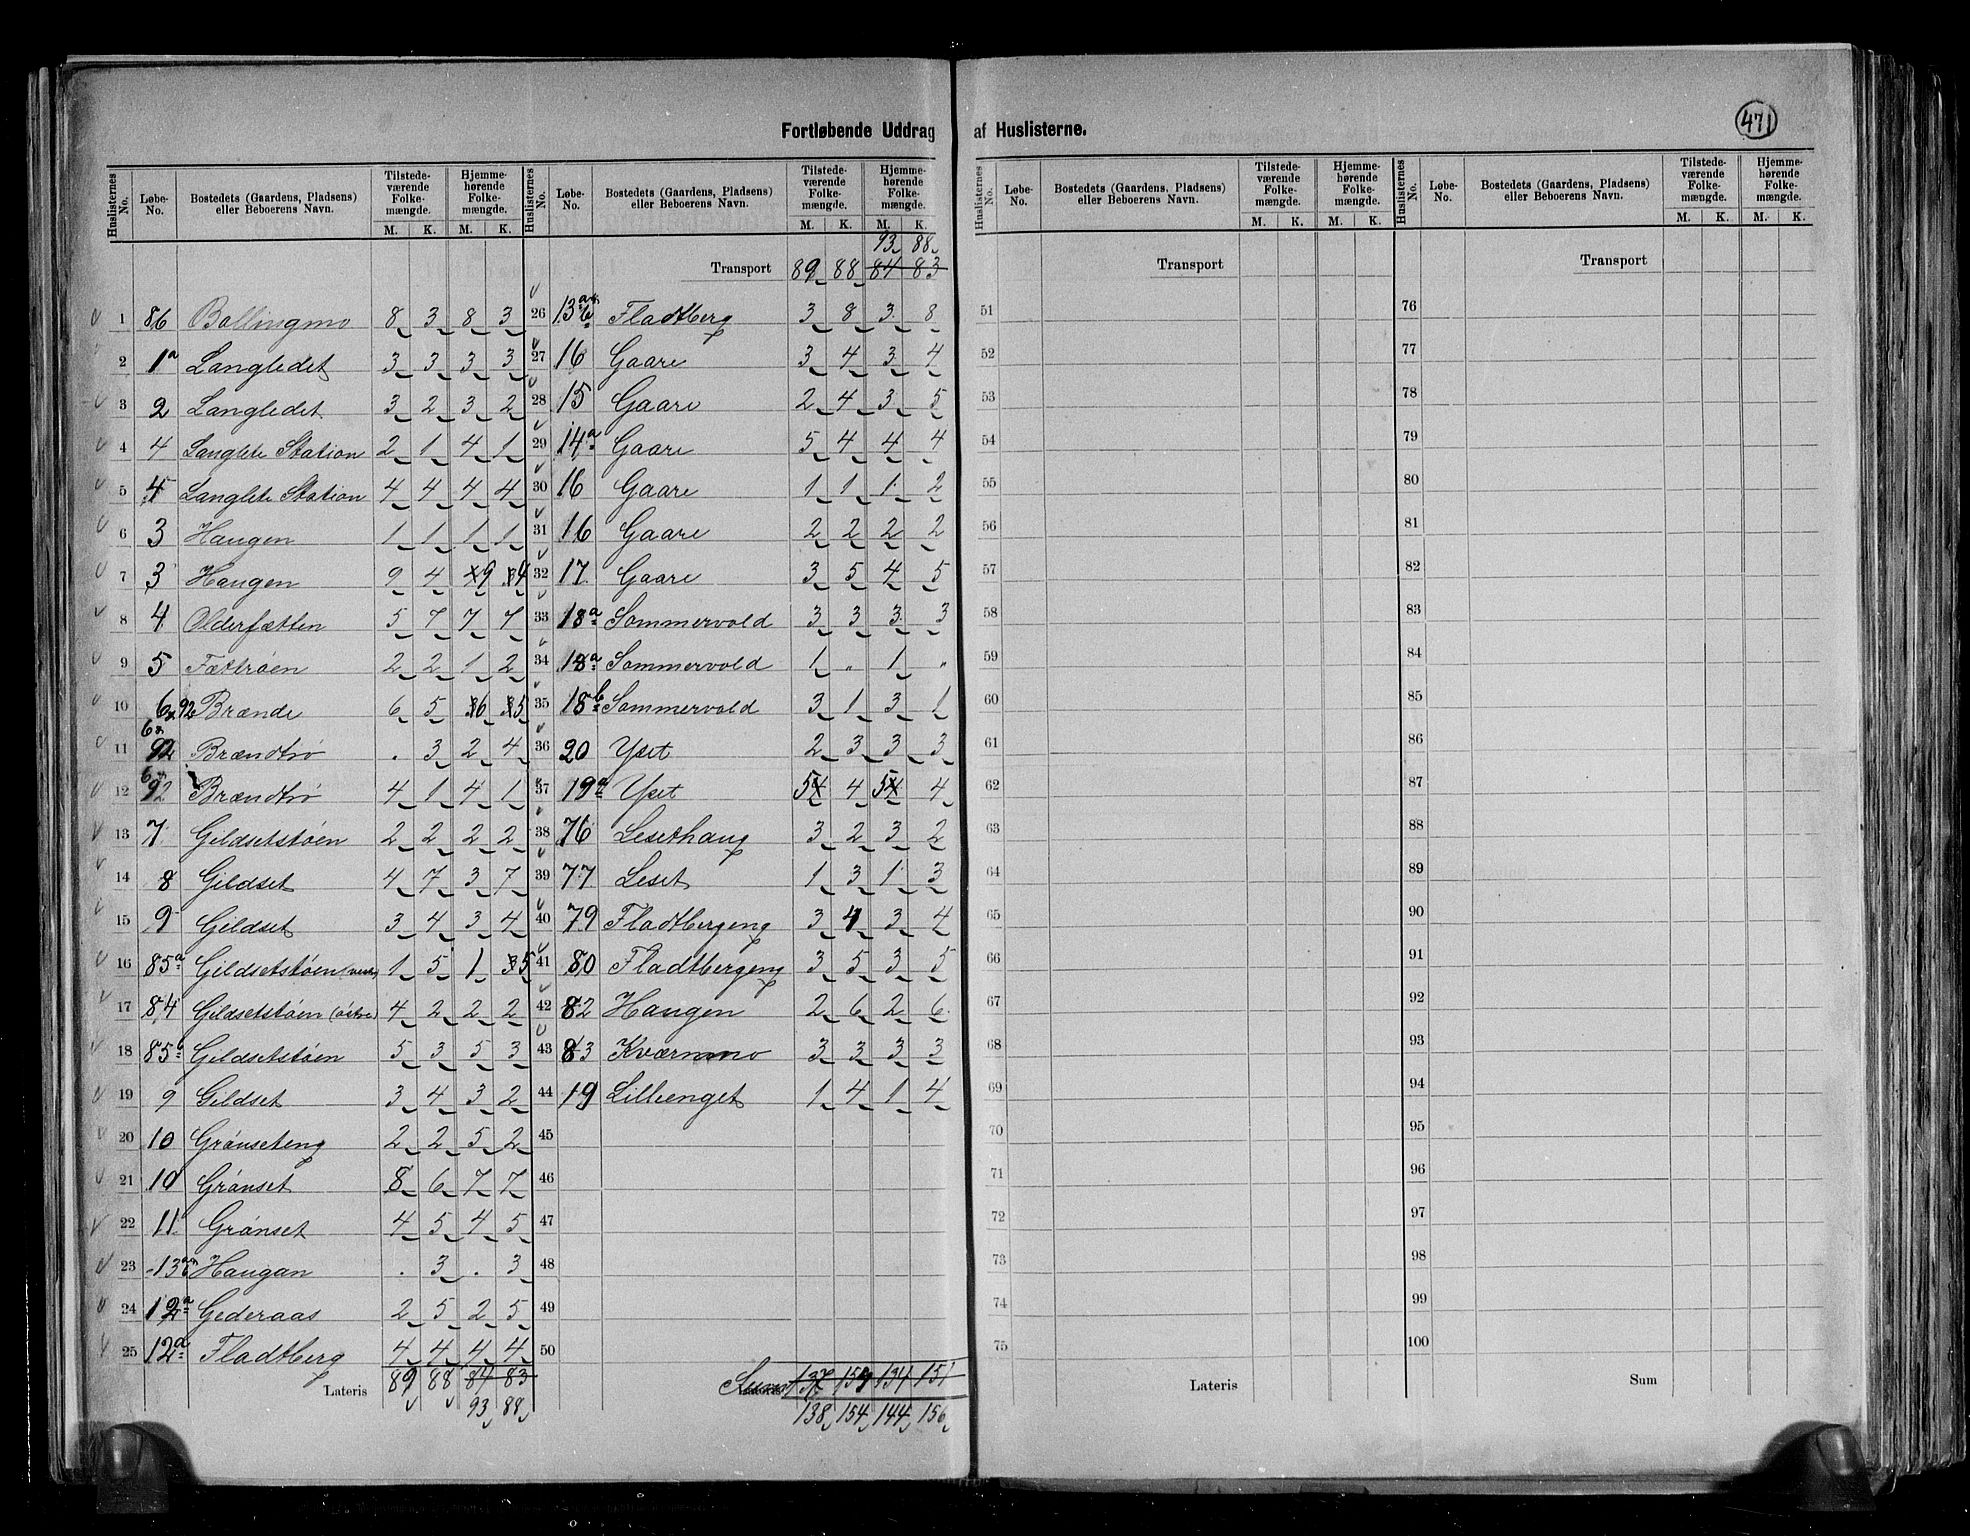 Fortløbende Uddrag af Huslisterne.
471
Huslisternes No. | Løbe-No. | Bostedets (Gaardens, Pladsens) eller Beboerens Navn. | Tilstedeværende Folkemængde. M. K. | Hjemmehørende Folkemængde. M. K.
1 86 Bollingmo 8 3 8 3
2 1a Langledet 3 3 3 3
3 2 Langledet 3 2 3 2
4 4 Langlete Station 2 1 4 1
5 4 Langlete Station 4 4 4 4
6 3 Haugen 1 1 1 1
7 3 Haugen 9 4 9 4
8 4 Olderfætten 5 7 7 7
9 5 Fættrøen 2 2 1 2
10 6 & 92 Brænde 6 5 6 5
11 6 & 92 Brændtrø . 3 2 4
12 6 & 92 Brændtrø 4 1 4 1
13 7 Gildsetstøen 2 2 2 2
14 8 Gildset 4 7 3 7
15 9 Gildset 3 4 3 4
16 85a Gildsetstøen 1 5 1 5
17 84 Gildsetstøen (østre) 4 2 2 2
18 85a Gildsetstøen 5 3 5 3
19 9 Gildset 3 4 3 2
20 10 Grønseteng 2 2 5 2
21 10 Grønset 8 6 7 7
22 11 Grønset 4 5 4 5
23 13 Haugan . 3 . 3
24 12a Gederaas 2 5 2 5
25 12a Fladtberg 4 4 4 4
Lateris 89 88 84 83
93 88
93 88
Transport 89 88 84 83
26 13 Fladtberg 3 8 3 8
27 16 Gaare 3 4 3 4
28 15 Gaare 2 4 3 5
29 14a Gaare 5 4 4 4
30 16 Gaare 1 1 1 2
31 16 Gaare 2 2 2 2
32 17 Gaare 3 5 4 5
33 18a Sommervold 3 3 3 3
34 18a Sommervold 1 . 1 .
35 18b Sommervold 3 1 3 1
36 20 Yset 2 3 3 3
37 19a Yset 5 4 5 4
38 76 Lesethaug 3 2 3 2
39 77 Leset 1 3 1 3
40 79 Fladtbergeng 3 4 3 4
41 80 Fladtbergeng 3 5 3 5
42 82 Haugen 2 6 2 6
43 83 Kværnmo 3 3 3 3
44 19 Lillienget 1 4 1 4
45
46
47
48
49
50
Summa 137 154 134 151
138 154 144 156
Huslisternes No. | Løbe-No. | Bostedets (Gaardens, Pladsens) eller Beboerens Navn. | Tilstedeværende Folkemængde. M. K. | Hjemmehørende Folkemængde. M. K.
Transport
51
52
53
54
55
56
57
58
59
60
61
62
63
64
65
66
67
68
69
70
71
72
73
74
75
Lateris
Huslisternes No. | Løbe-No. | Bostedets (Gaardens, Pladsens) eller Beboerens Navn. | Tilstedeværende Folkemængde. M. K. | Hjemmehørende Folkemængde. M. K.
Transport
76
77
78
79
80
81
82
83
84
85
86
87
88
89
90
91
92
93
94
95
96
97
98
99
100
Sum